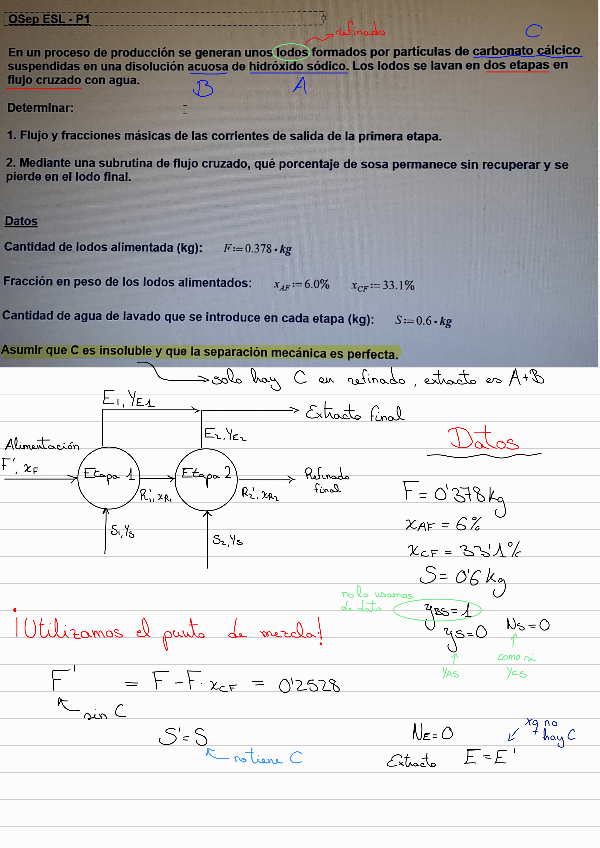 OSep ESL - P1
refinado
C
En un proceso de producción se generan unos lodos formados por partículas de carbonato cálcico
suspendidas en una disolución acuosa de hidróxido sódico. Los lodos se lavan en dos etapas en
flujo cruzado con agua.
B
A
Determinar:
1. Flujo y fracciones másicas de las corrientes de salida de la primera etapa.
2. Mediante una subrutina de flujo cruzado, qué porcentaje de sosa permanece sin recuperar y se
pierde en el lodo final.
Datos
Cantidad de lodos alimentada (kg): F:=0.378·kg
Fracción en peso de los lodos alimentados: x_AF:=6.0% x_CF:=33.1%
Cantidad de agua de lavado que se introduce en cada etapa (kg): S:=0.6·kg
Asumir que C es insoluble y que la separación mecánica es perfecta.
solo hay C en refinado, extracto es A+B
E1, YE1
Extracto final
E2, YE2
Alimentación
F', xF
Etapa 1
Etapa 2
R1', xR1
R2', xR2
Refinado
final
S1, Ys
S2, Ys
Datos
F = 0'378 kg
xAF = 6%
xCF = 33'1%
S = 0'6 kg
no lo usamos
de dato
yBS = 1
yS = 0 NS = 0
yAS
como si
yCS
¡Utilizamos el punto de mezcla!
F' = F - F·xCF = 0'2528
sin C
S' = S
no tiene C
NE = 0
xq no
hay C
Extracto E = E'